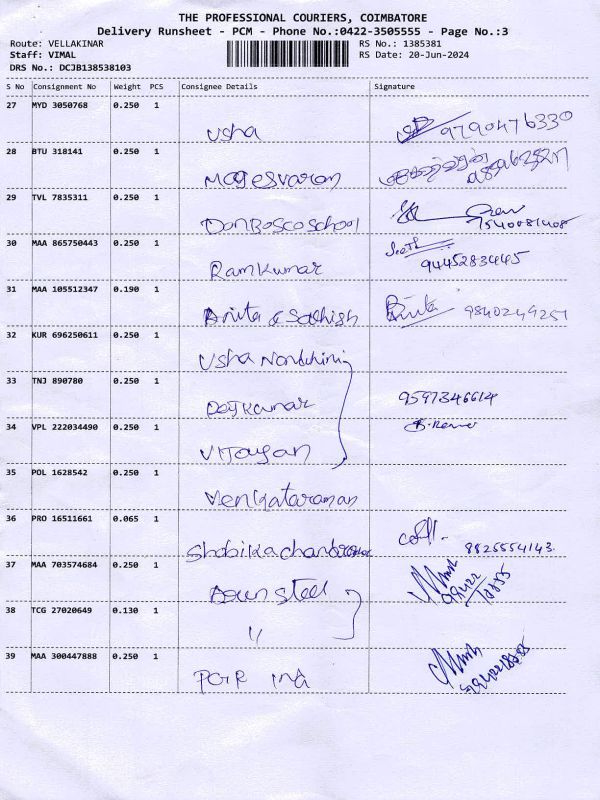 THE PROFESSIONAL COURIERS, COIMBATORE
Delivery Runsheet - PCM - Phone No.:0422-3505555 - Page No.:3
Route: VELLAKINAR RS No.: 1385381
Staff: VIMAL RS Date: 20-Jun-2024
DRS No.: DCJB138538103
S No Consignment No Weight PCS Consignee Details Signature
27 MYD 3050768 0.250 1
Usha 9790476330
28 BTU 318141 0.250 1
Magesvaran
29 TVL 7835311 0.250 1
DonBosco School
30 MAA 865750443 0.250 1
Ramkumar 9445283445
31 MAA 105512347 0.190 1
Anita & Sathish Anita 9840249251
32 KUR 696250611 0.250 1
Usha
33 TNJ 890780 0.250 1
9597346614
34 VPL 222034490 0.250 1
Vijayan
35 POL 1628542 0.250 1
Venkataraman
36 PRO 16511661 0.065 1
Shobika 8825554143
37 MAA 703574684 0.250 1
Steel
38 TCG 27020649 0.130 1
"
39 MAA 300447888 0.250 1
PGR